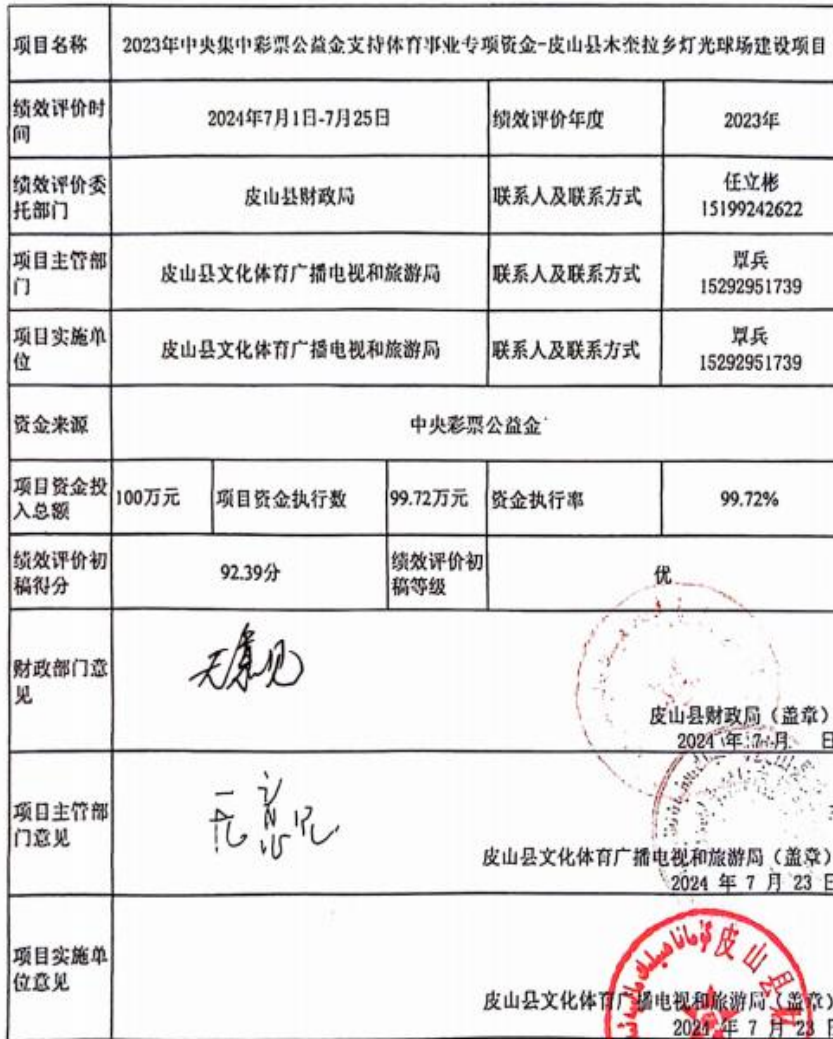 项目名称 2023年中央集中彩票公益金支持体育事业专项资金-皮山县木奎拉乡灯光球场建设项目
绩效评价时间 2024年7月1日-7月25日 绩效评价年度 2023年
绩效评价委托部门 皮山县财政局 联系人及联系方式 任立彬
15199242622
项目主管部门 皮山县文化体育广播电视和旅游局 联系人及联系方式 覃兵
15292951739
项目实施单位 皮山县文化体育广播电视和旅游局 联系人及联系方式 覃兵
15292951739
资金来源 中央彩票公益金
项目资金投入总额 100万元 项目资金执行数 99.72万元 资金执行率 99.72%
绩效评价初稿得分 92.39分 绩效评价初稿等级 优
财政部门意见 无意见
皮山县财政局（盖章）
2024 年 7 月 日
项目主管部门意见 无意见
皮山县文化体育广播电视和旅游局（盖章）
2024 年 7 月 23 日
项目实施单位意见
皮山县
皮山县文化体育广播电视和旅游局（盖章）
2024 年 7 月 23 日